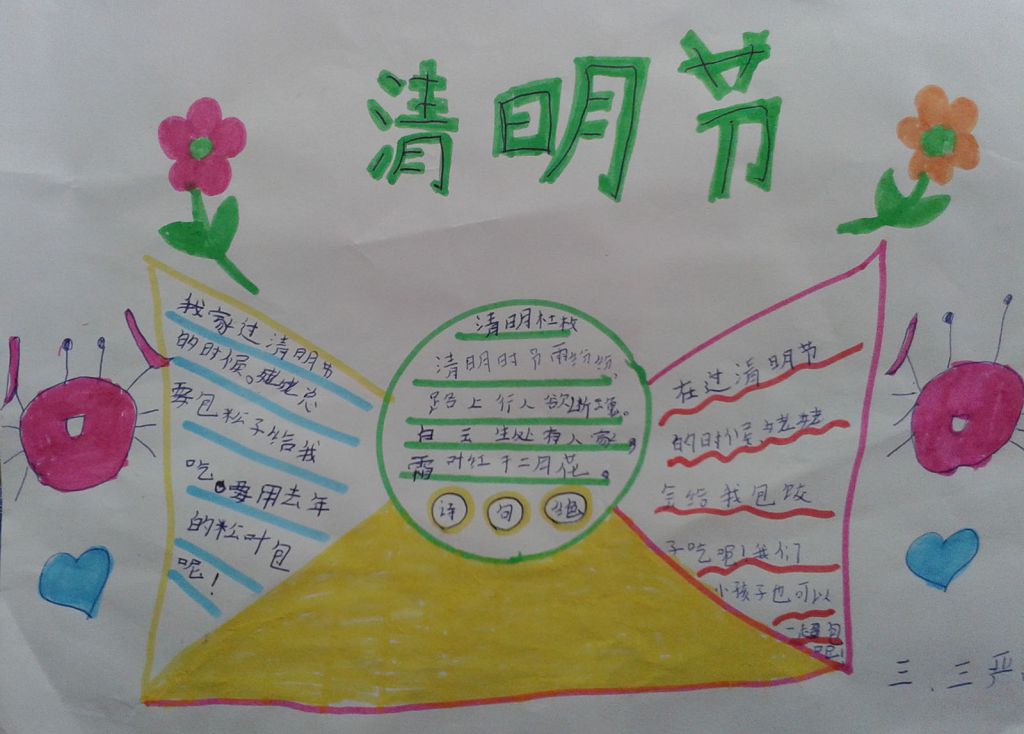 清明节
我家过清明节
的时候。姥姥总
要包粽子给我
吃。要用去年
的粽叶包
呢！
清明杜牧
清明时节雨纷纷，
路上行人欲断魂。
白云生处有人家，
霜对红于二月花。
诗 句 组
在过清明节
的时候，姥姥
会给我包饺
子吃呢！我们
小孩子也可以
一起包
呢！
三、三 严